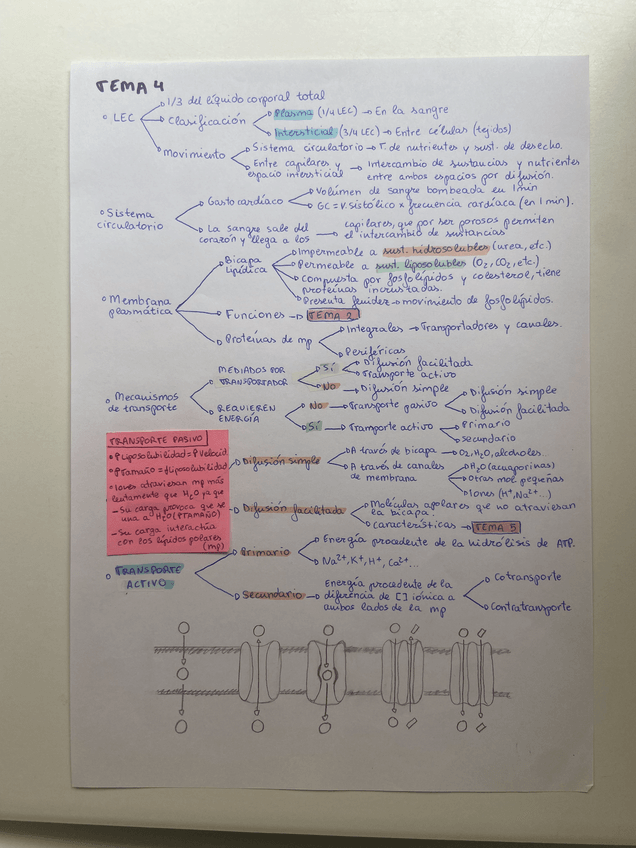 TEMA 4
1/3 del líquido corporal total
LEC
Clasificación
Plasma (1/4 LEC) → En la sangre
Intersticial (3/4 LEC) → Entre células (tejidos)
Movimiento
Sistema circulatorio → T. de nutrientes y sust. de desecho.
Entre capilares y espacio intersticial → Intercambio de sustancias y nutrientes
entre ambos espacios por difusión.
Sistema circulatorio
Gasto cardíaco
Volúmen de sangre bombeada en 1 min
GC = V. sistólico x frecuencia cardíaca (en 1 min).
La sangre sale del corazón y llega a los → capilares, que por ser porosos permiten
el intercambio de sustancias
Membrana plasmática
Bicapa lipídica
Impermeable a sust. hidrosolubles (urea, etc.)
Permeable a sust. liposolubles (O₂, CO₂, etc.)
Compuesta por fosfolípidos y colesterol, tiene
proteínas incrustadas.
Presenta fluidez → movimiento de fosfolípidos.
Funciones → TEMA 2
Proteínas de mp
Integrales → Transportadores y canales.
Periféricas
Mecanismos de transporte
MEDIADOS POR TRANSPORTADOR
Sí
Difusión facilitada
Transporte activo
No → Difusión simple
REQUIEREN ENERGÍA
No → Transporte pasivo
Difusión simple
Difusión facilitada
Sí → Tramporte activo
Primario
Secundario
TRANSPORTE PASIVO
↑Liposolubilidad = ↑Velocid.
↑Tamaño = ↓Liposolubilidad
Iones atraviesan mp más
lentamente que H₂O ya que
- Su carga provoca que se
una a H₂O (↑TAMAÑO)
- Su carga interactúa
con los lípidos polares
(mp)
Difusión simple
A través de bicapa → O₂, H₂O, alcoholes...
A través de canales de membrana
H₂O (acuaporinas)
Otras mol. pequeñas
Iones (H⁺, Na²⁺...)
Difusión facilitada
Moléculas apolares que no atraviesan
la bicapa.
Características → TEMA 5
TRANSPORTE ACTIVO
Primario
Energía procedente de la hidrólisis de ATP.
Na²⁺, K⁺, H⁺, Ca²⁺...
Secundario
Energía procedente de la
diferencia de [] iónica a
ambos lados de la mp
Cotransporte
Contratransporte